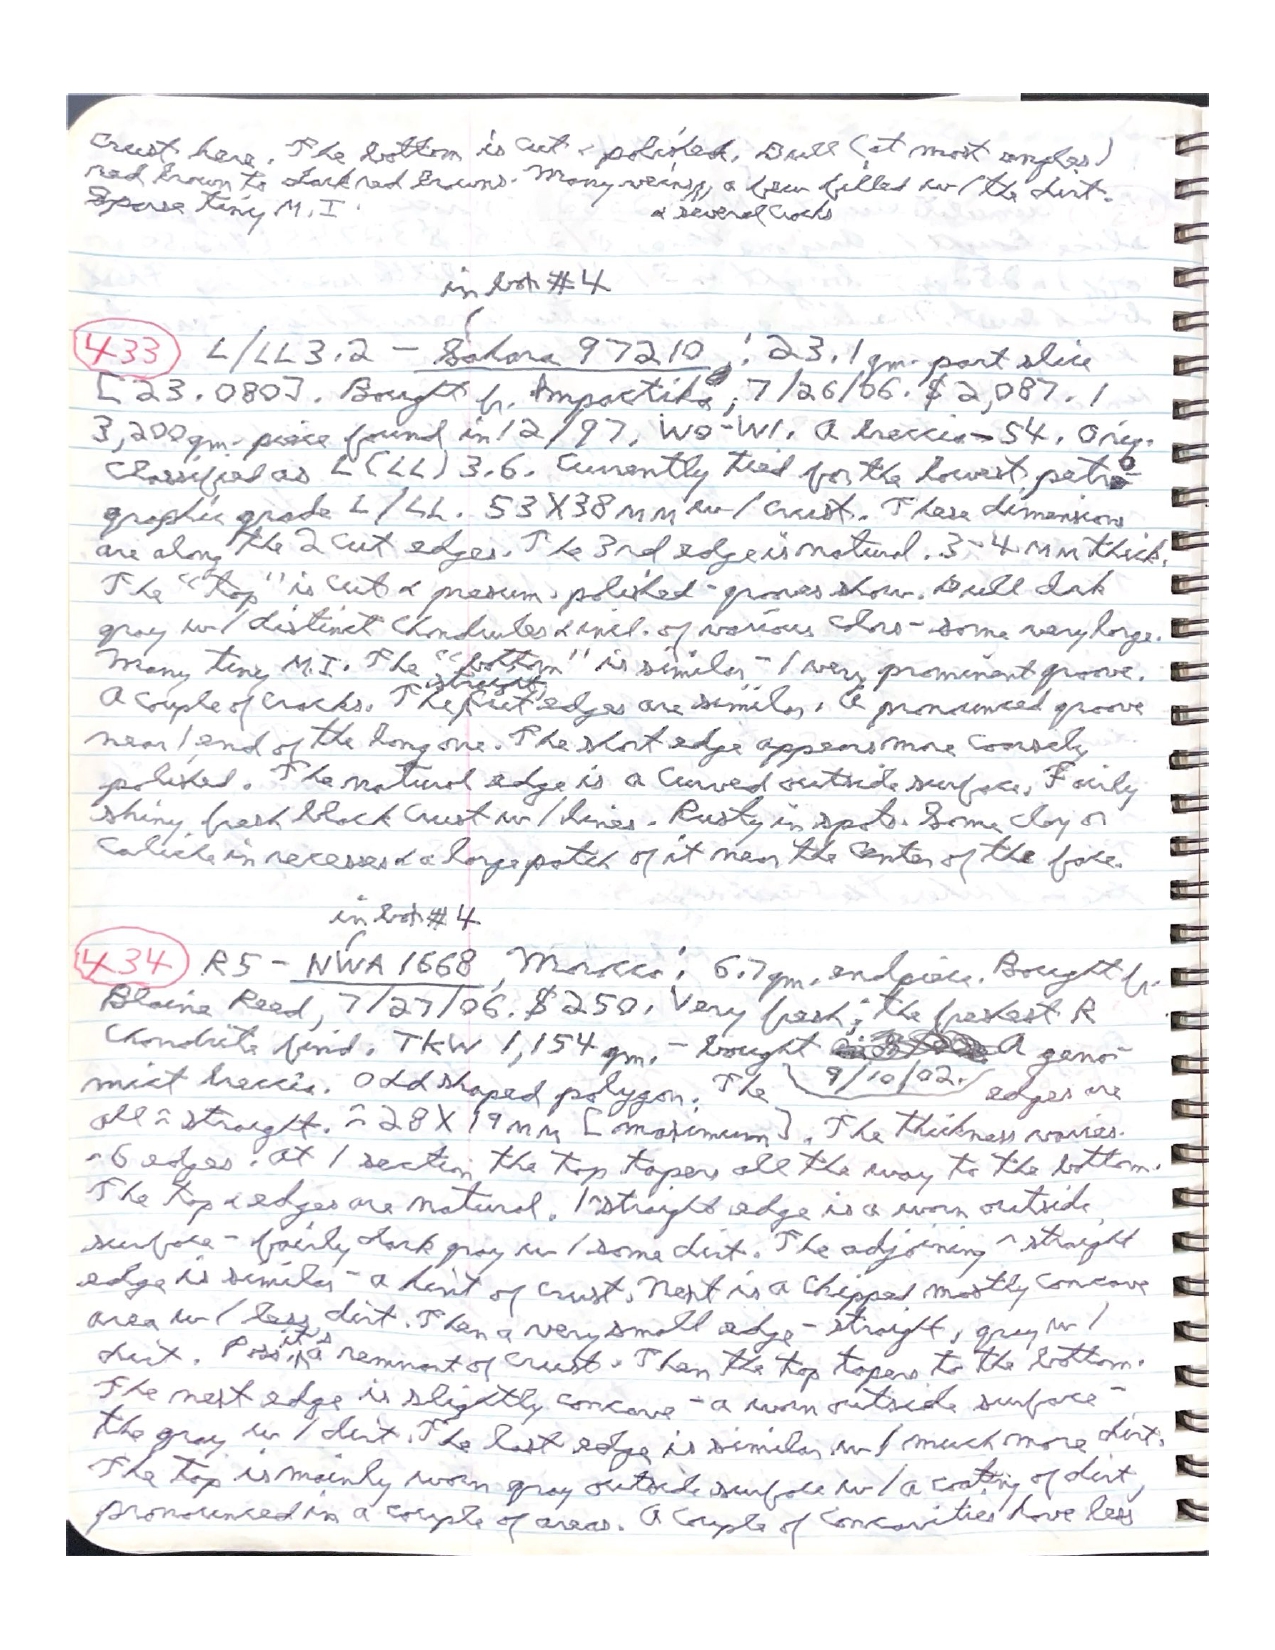 crust here. The bottom is cut & polished. Dull (at most angles)
red brown to dark red browns. Many veins, a few filled w/ the dirt.
& several cracks
Sparse tiny M.I.
in box #4
433 L/LL3.2 - Sahara 97210 : 23.1 gm. part slice
[23.080]. Bought fr. Impactika, 7/26/06. $2,087. 1
3,200 gm. piece found in 12/97. W0-W1. A breccia - S4. Orig.
classified as L(LL) 3.6. Currently tied for the lowest petro-
graphic grade L/LL. 53X38 MM w/ crust. These dimensions
are along the 2 cut edges. The 3rd edge is natural. 3-4 MM thick.
The "top" is cut & presum. polished - grooves show. Dull dark
gray w/ distinct chondrules & incl. of various colors - some very large.
Many tiny M.I. The "bottom" is similar - 1 very prominent groove.
A couple of cracks. The straight cut edges are similar. A pronounced groove
near 1 end of the long one. The short edge appears more coarsely
polished. The natural edge is a curved outside surface. Fairly
shiny, fresh black crust w/ lines. Rusty in spots. Some clay or
caliche in recesses & a large patch of it near the center of the face.
in box #4
434 R5 - NWA 1668, Morocco : 6.7 gm. endpiece. Bought fr.
Blaine Reed, 7/27/06. $250. Very fresh; the freshest R
chondrite find. TKW 1,154 gm. - bought 9/10/02. A geno-
mict breccia. Odd shaped polygon. The edges are
all ~ straight. ~ 28 X 19 MM [maximum]. The thickness varies.
~ 6 edges. At 1 section the top tapers all the way to the bottom.
The top & edges are natural. 1 ~ straight edge is a worn outside
surface - fairly dark gray w/ some dirt. The adjoining ~ straight
edge is similar - a hint of crust. Next is a chipped mostly concave
area w/ less dirt. Then a very small edge - straight, gray w/
dirt. Poss. it's a remnant of crust. Then the top tapers to the bottom.
The next edge is slightly concave - a worn outside surface -
the gray w/ dirt. The last edge is similar w/ much more dirt.
The top is mainly worn gray outside surface w/ a coating of dirt,
pronounced in a couple of areas. A couple of concavities have less